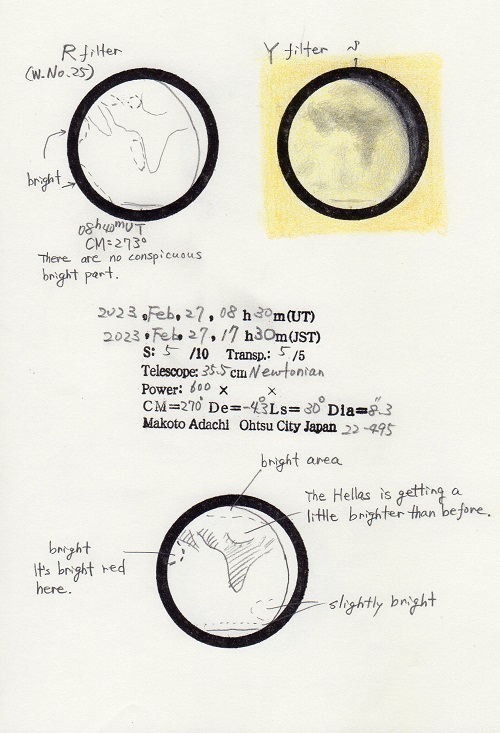 R filter
(W.No.25)
Y filter
bright
08h40mUT
CM=273°
There are no conspicuous
bright part.
2023, Feb, 27, 08 h 30m(UT)
2023, Feb, 27, 17 h30m(JST)
S: 5 /10 Transp.: 5 /5
Telescope: 35.5 cm Newtonian
Power: 600 × ×
CM=270° De=-4.3° Ls= 30° Dia=8.3"
Makoto Adachi Ohtsu City Japan 22-495
bright area
The Hellas is getting a
little brighter than before.
bright
It's bright red
here.
slightly bright